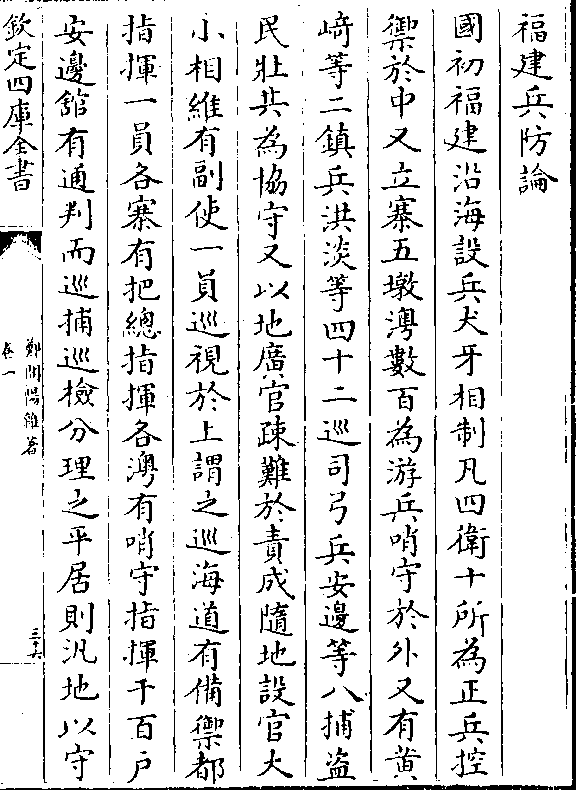 福建兵防論
國初福建沿海設兵犬牙相制凡四衛十所為正兵控
禦於中又立寨五墩澳數百為游兵哨守於外又有黄
崎等二鎮兵洪淡等四十二巡司弓兵安邊等八捕盗
民壯共為協守又以地廣官疎難於責成隨地設官大
小相維有副使一員巡視於上謂之巡海道有備禦都
指揮一員各寨有把總指揮各澳有哨守指揮千百户
安邊舘有通判而巡捕巡檢分理之平居則汛地以守
欽定四庫全書
鄭開陽雜著
卷一
三十六